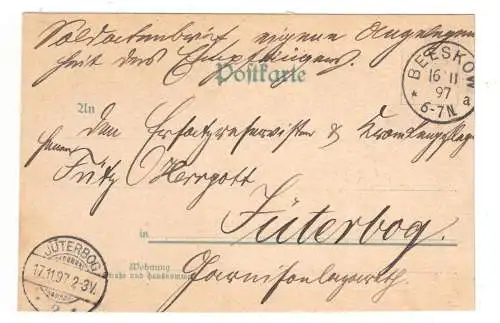 Soldatenbrief eigene Angelegen
heit des Empfängers.
Postkarte
BEESKOW
16 11
97
* 6-7N. a
An
den Ersatzreservisten & Krankenpfleger
Herrn
Fritz Herrgott
in Jüterbog.
Wohnung
(Straße und Hausnummer)
Garnisonlazareth.
JÜTERBOG
17.11.97. 2-3V.